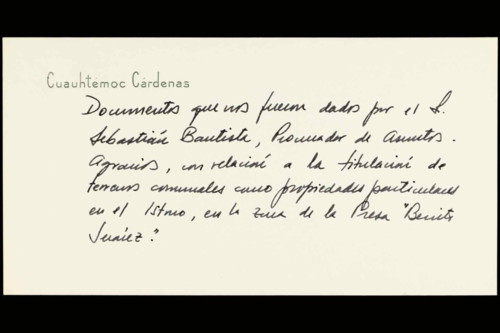 Cuauhtemoc Cárdenas
Documentos que nos fueron dados por el S.
Sebastián Bautista, Procurador de Asuntos
Agrarios, con relación a la titulación de
terrenos comunales como propiedades particulares
en el Istmo, en la zona de la Presa "Benito
Juárez".